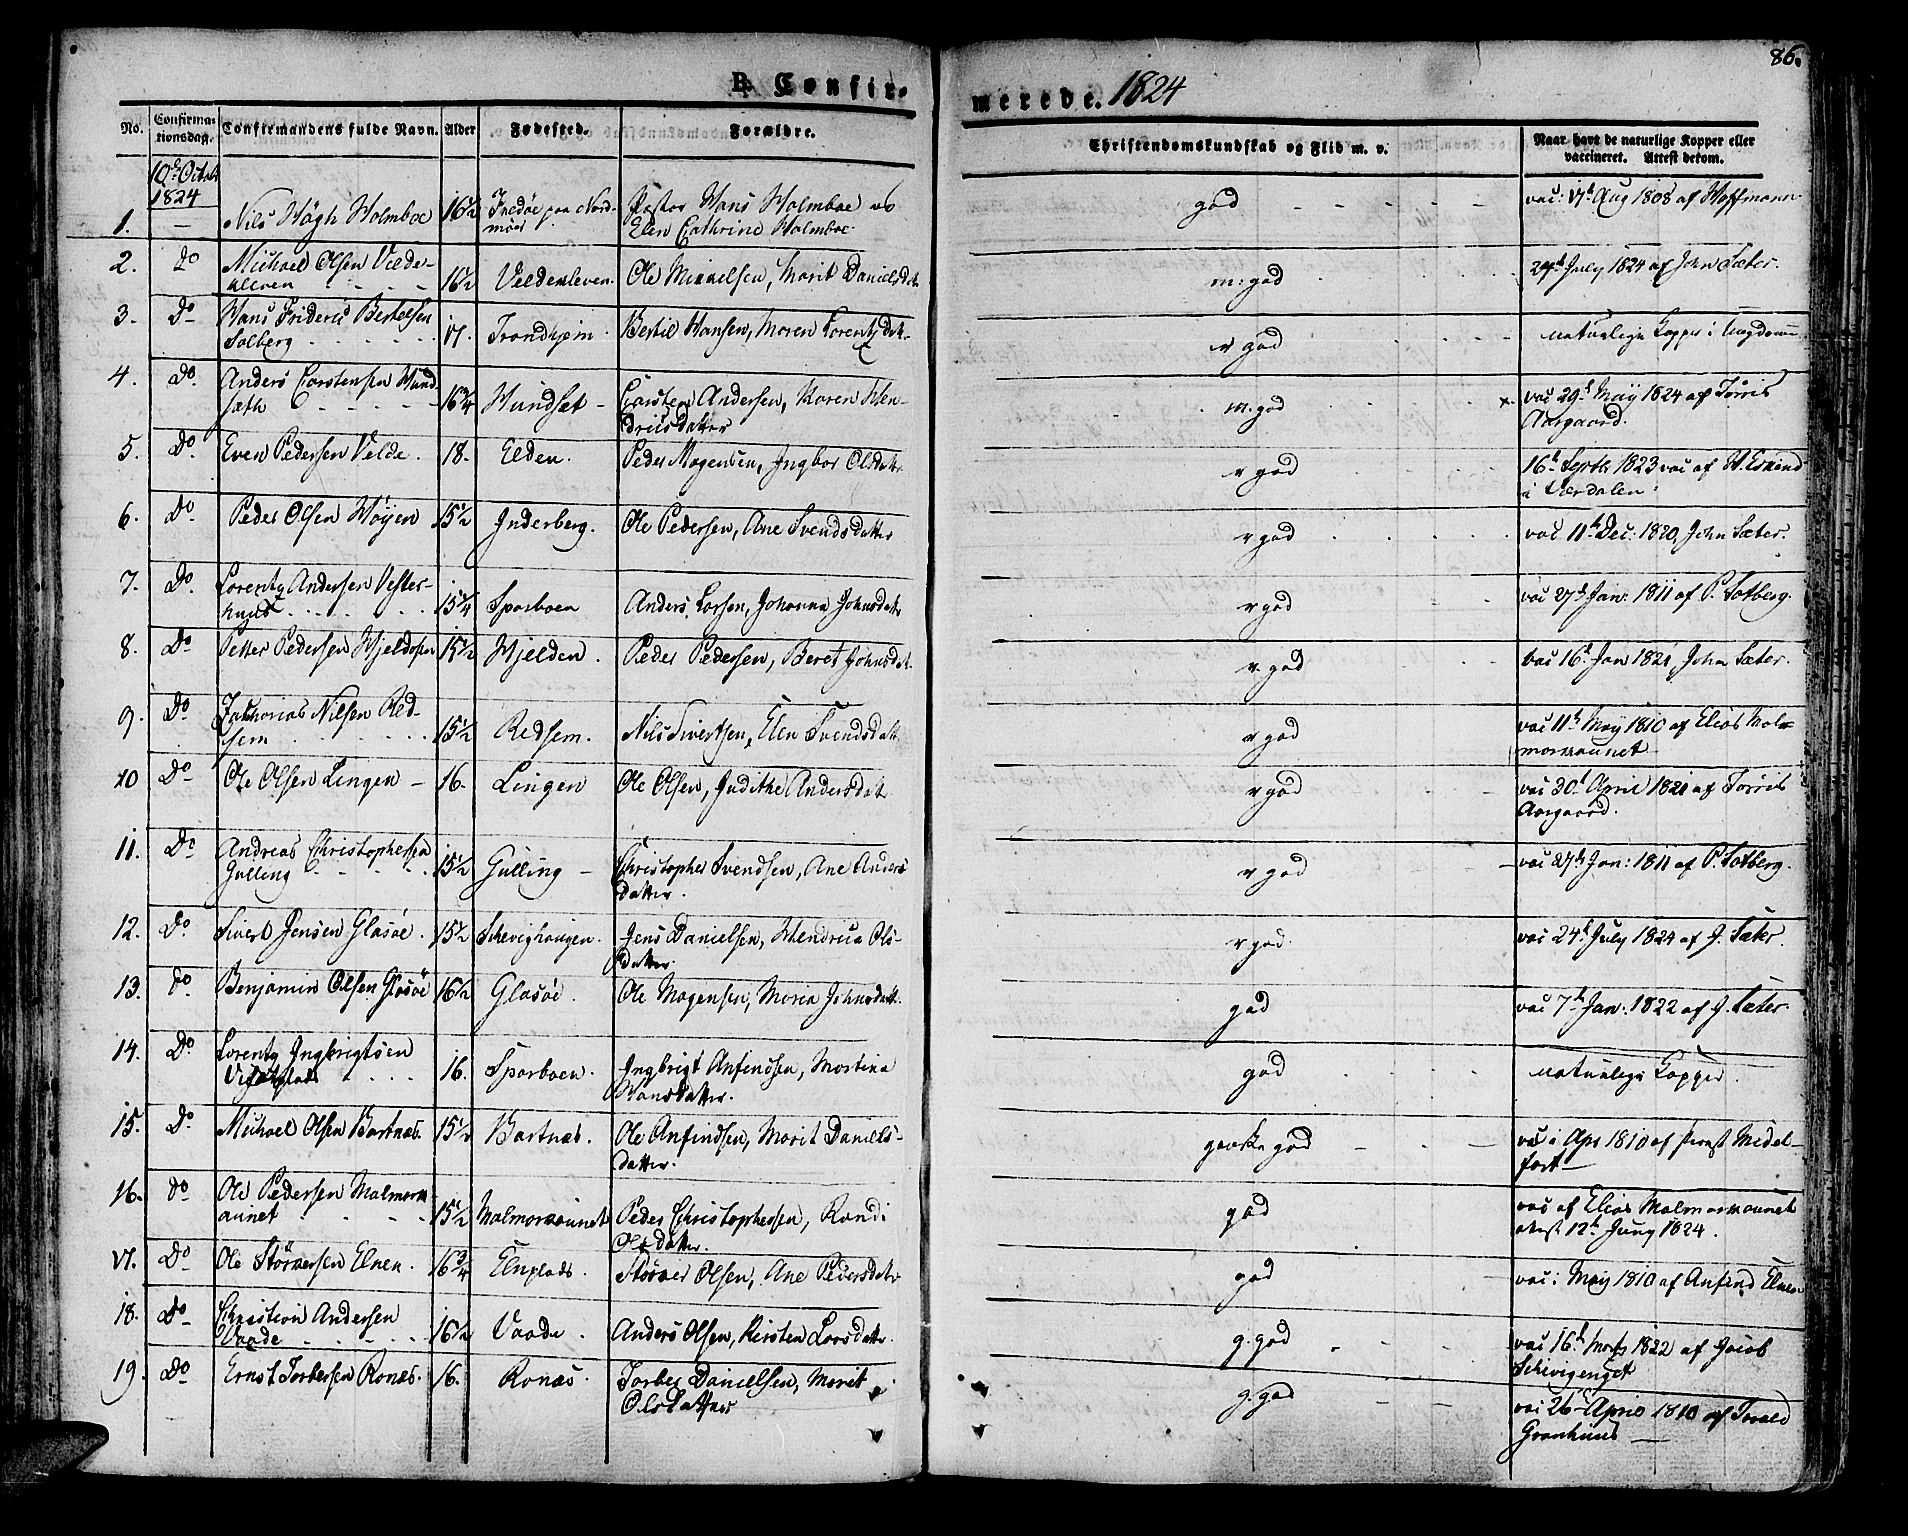 86.
B. Confir-
merede. 1824
No.
Confirma-
tionsdag.
Confirmandens fulde Navn.
Alder
Fødested.
Forældre.
Christendomskundskab og Flid m. v.
Naar havt de naturlige Kopper eller
vaccineret. Attest derom.
10de Octob
1824
1. — Nils Høgh Holmboe 16½ Tredöe paa Nord-
möer Pastor Hans Holmboe og
Elen Cathrine Holmboe. god vac: 17d Aug 1808 af Hoffmann
2. Do Michael Olsen Velde-
16½ Veldemleven Ole Mikkelsen, Marit Danielsdat m: god 24d July 1824 af John Sæter.
3. Do Hans Frideric Bertelsen
Solberg 17. Trondhjem. Bertil Hansen, Maren Lorentzdat. v god naturlige Kopper i
4. Do Anders Carstensen Hund
sæth 16¾ Hundsæt Carsten Andersen, Karen Hen-
dricsdatter m. god vac 29d May 1824 af Törris
Aargaard.
5. Do Even Pedersen Velde. 18. Elden. Peder Mogensen, Ingbor Olsdatr v god 16d Septbr 1823 vac af
i Værdalen
6. Do Peder Olsen Höyem 15½ Inderberg. Ole Pedersen, Ane Svendsdatter v god vac 11d Dec: 1820, John Sæter.
7. Do Lorentz Andersen Vester-
15¾ Sparboen Anders Larsen, Johanna Johnsdatr v god vac 27d Jan: 1811 af P. Solberg.
8. Do Petter Pedersen Hjeldosen 15½ Hjelden. Peder Pedersen, Beret Johnsdat. v. god vac 16d Jan 1821, John Sæter.
9. Do Zacharias Nilsen Red-
sem 15½ Redsem. Nils Sivertsen, Elen Svendsdatr v god vac 11d May 1810 af Elias Malm
10 Do Ole Olsen Lingen 16. Lingen Ole Olsen, Judithe Andersdatr v god vac 30d April 1821 af Törris
Aargaard.
11. Do Andreas Christophersen
Gulling 15½ Gulling Christopher Svendsen, Ane Anders
datter. v god vac 27d Jan: 1811 af P. Solberg.
12. Do Sivert Jensen Glasöe. 15½ Schevighaugen. Jens Danielsen, Hendrica Ols-
datter. v god. vac 24d July 1824 af J. Sæter.
13. do Benjamin Olsen Glasöe 16½ Glasöe. Ole Mogensen, Maria Johnsdatt. god vac 7d Jan: 1822 af J. Sæter.
14. Do Lorentz Ingbrigtsen
16. Sparboen. Ingbrigt Anfindsen, Martina
Hansdatter. god naturlige Kopper.
15. Do Michael Olsen Bartnæs. 15½ Bartnæs. Ole Anfindsen, Marit Daniels-
datter. ganske god vac i Apr 1810 af Provst Medel-
fart
16. do Ole Pedersen Malmoræ
aunet 15½ Malmoræaunet Peder Christophersen, Randi
Olsdatter. god vac af Elias Malmoræaunet
atest 12d Juny 1824.
17. Do Ole Störkersen Elnen. 16¾ Elnplads. Störker Olsen, Ane Pedersdatr god vac i May 1810 af Anfind Elnen
18. Do Christian Andersen
Vaade 16½ Vaade. Anders Olsen, Kirsten Larsdatter. g. god vac 16d Marts 1822 af Jacob
Schevigenget
19. Do Ernst Torbersen Ronæs. 16. Ronæs. Torber Danielsen, Marit
Olsdatter g. god vac 26 April 1810 af Torald
Granhuus